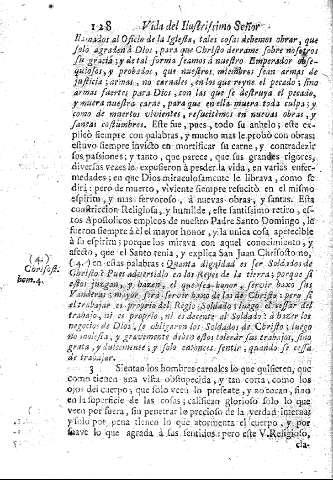 128 Vida del Ilustrissimo Señor
llamados al Oficio de la Iglesia, tales cosas debemos obrar, que
solo agraden à Dios, para que Christo derrame sobre nosotros
su gracia; y de tal forma seamos à nuestro Emperador obse-
quiosos, y probados, que nuestros miembros sean armas de
justicia; armas, no carnales, en los que reyne el pecado; sino
armas fuertes para Dios, con las que se destruya el pecado,
y muera nuestra carne, para que en ella muera toda culpa; y
como de muertos vivientes, resucitèmos en nuevas obras, y
santas costumbres. Este fue, pues, todo su anhelo; este ex-
plicò siempre con palabras, y mucho mas le probò con obras:
estuvo siempre invicto en mortificar su carne, y contradecir
sus passiones; y tanto, que parece, que sus grandes rigores,
diversas vezes le expusieron à perder la vida, en varias enfer-
medades; en que Dios milagrosamente le librava, como se
dirà: pero de muerto, viviente siempre resucitò en el mismo
espiritu, y mas fervoroso, à nuevas obras, y santas. Esta
constriccion Religiosa, y humilde, este santissimo retiro, es-
tos Apostolicos empleos de nuestro Padre Santo Domingo, le
fueron siempre à èl el mayor honor, y la unica cosa apetecible
à su espiritu; porque los mirava con aquel conocimiento, y
afecto, que el Santo tenia, y explica San Juan Chrisostomo,
(4.)
Chrisost.
hom. 4.
(4.) en estas palabras: Quanta dignidad es ser Soldados de
Christo? Pues advertidlo en los Reyes de la tierra; porque si
estos juzgan, y hazen, el que sea honor, servir baxo sus
Vanderas; mayor serà servir baxo de las de Christo: pero si
el trabajar es proprio del Regio Soldado; luego el cessar del
trabajo, ni es proprio, ni es decente al Soldado: à hazer los
negocios de Dios, se obligaron los Soldados de Christo; luego
no molesta, y gravemente deben estos tolerar sus trabajos, sino
grata, y dulcemente; y solo entonces sentir, quando se cessa
de trabajar.
3 Sientan los hombres carnales lo que quisieren, que
como tienen una vista obscurecida, y tan corta, como los
ojos del cuerpo; que solo ven lo presente, y no tocan, sino
en la superficie de las cosas; califican glorioso solo lo que
ven por fuera, sin penetrar lo precioso de la verdad interna;
y solo por pena tienen lo que atormenta el cuerpo, y por
suave lo que agrada à sus sentidos: pero este V. Religioso,
cla-